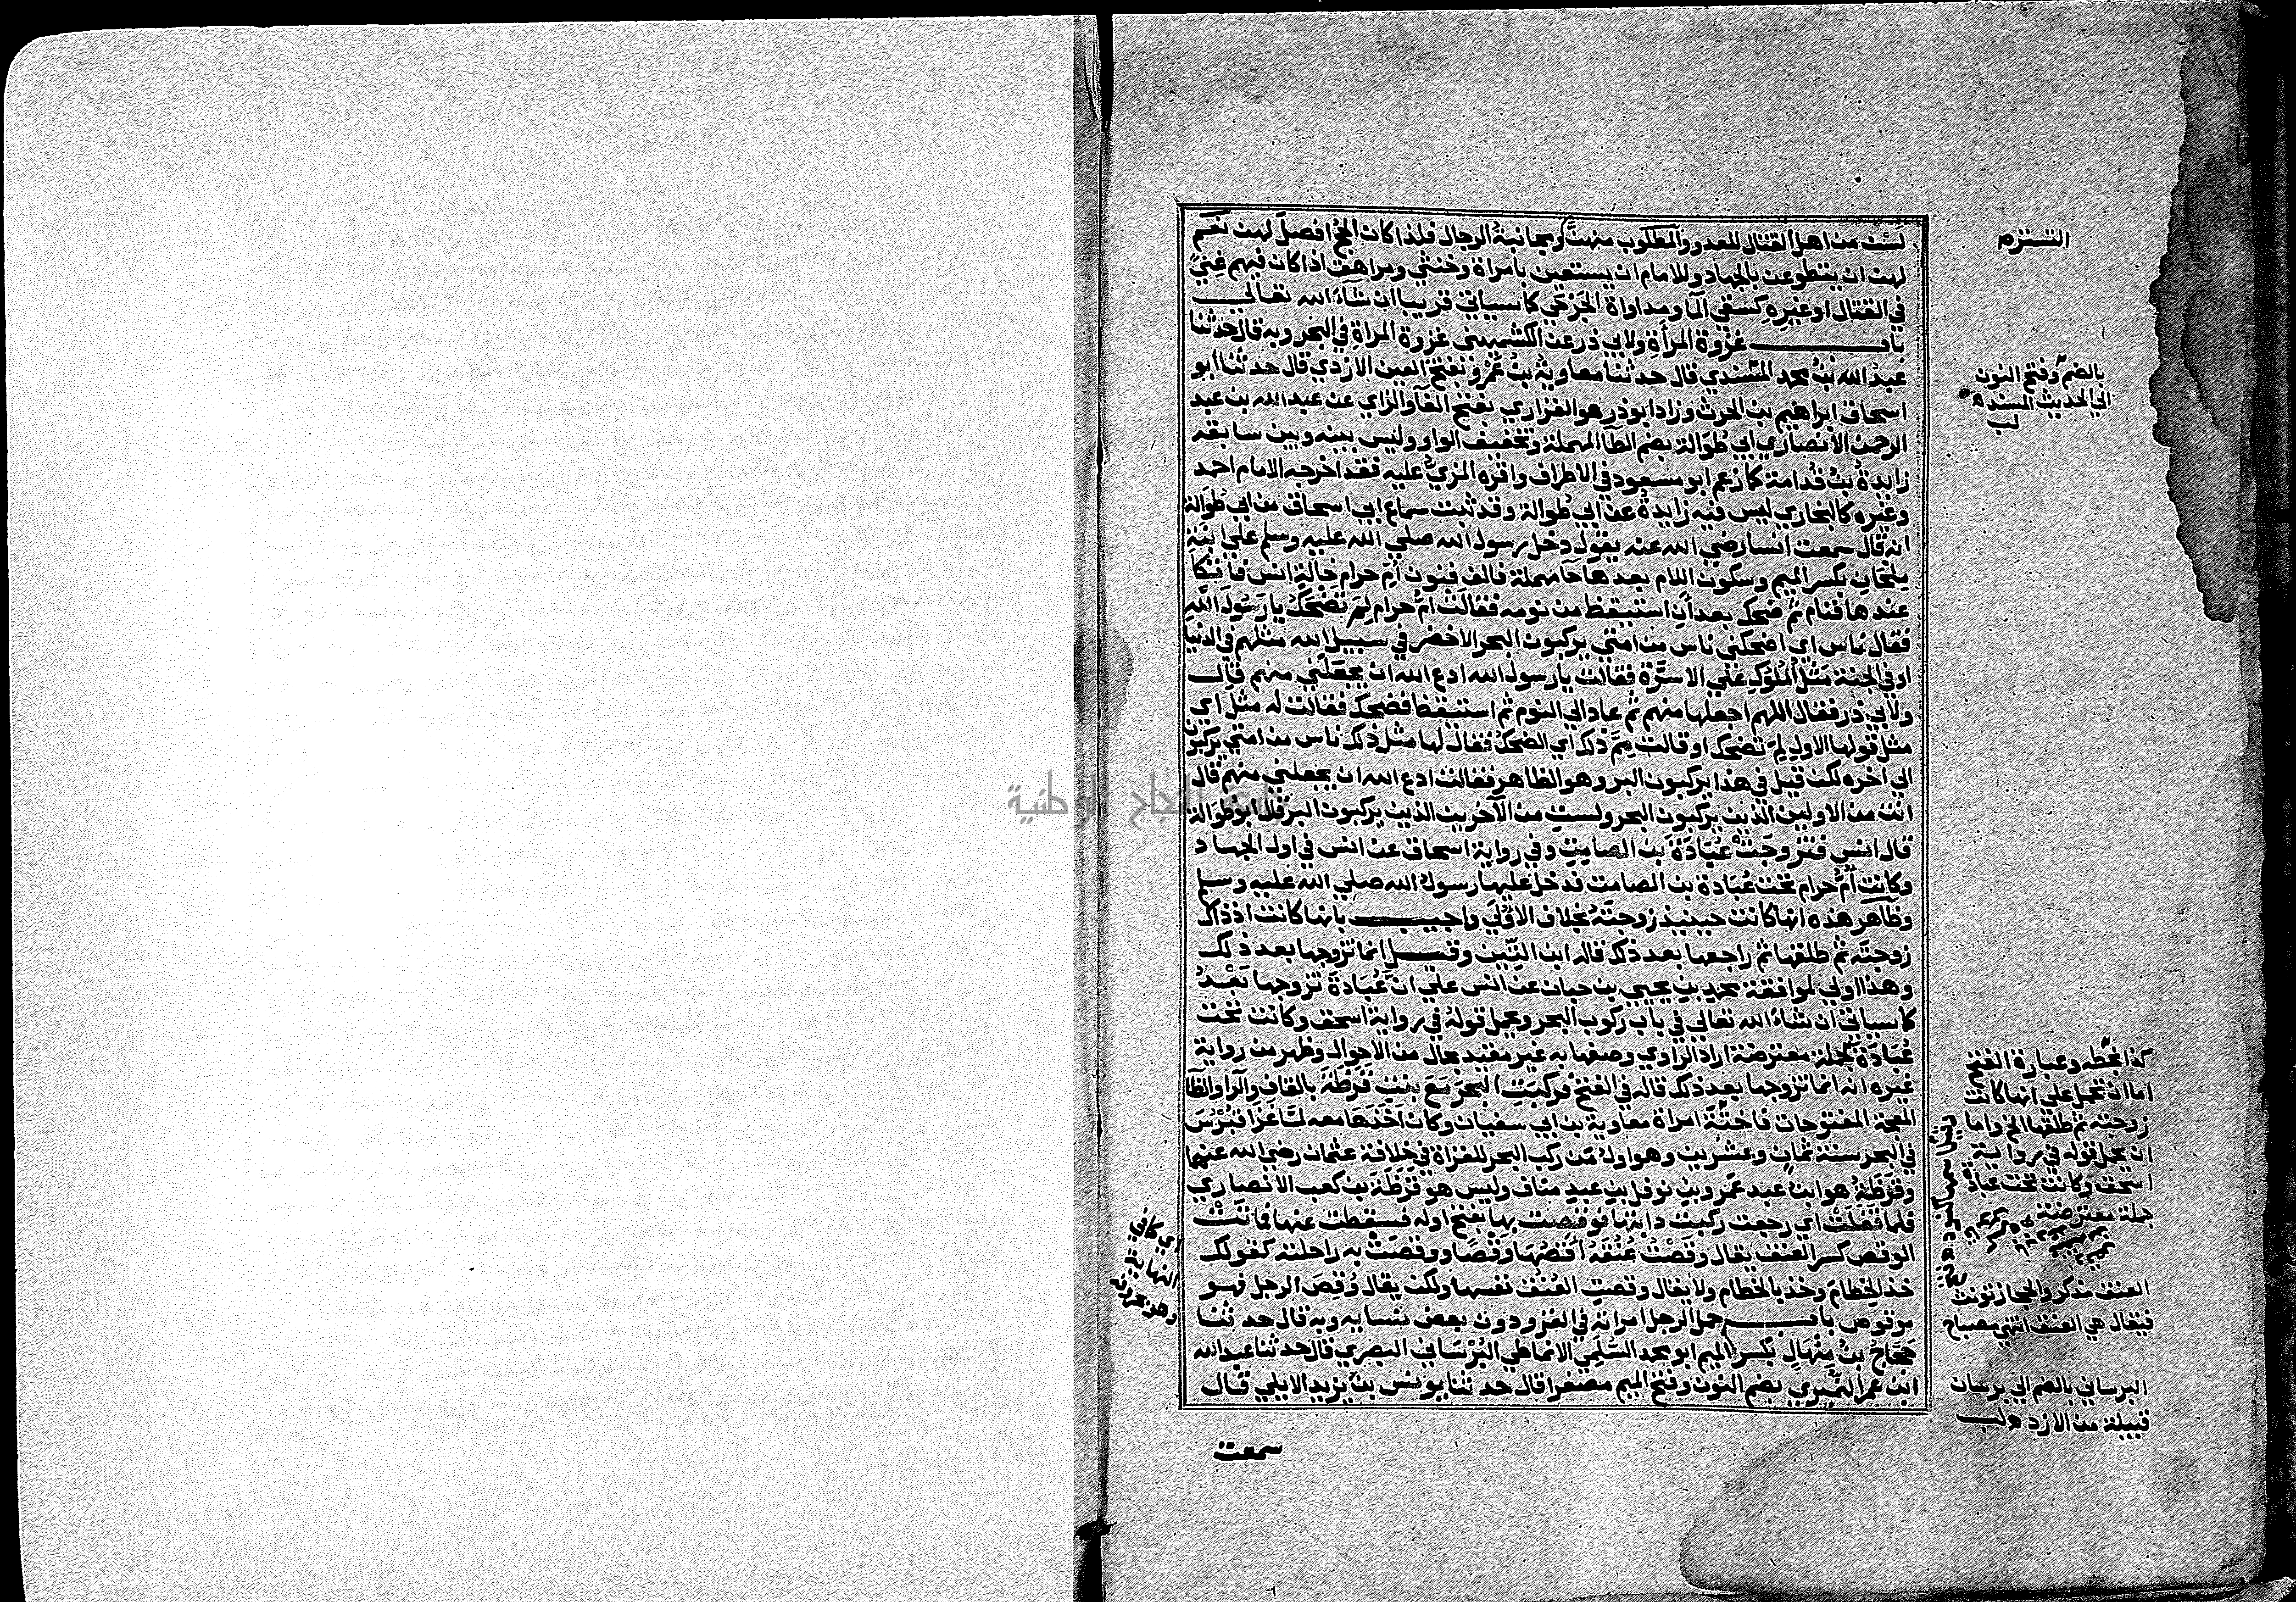 لسن من اهل القتال للعدو والمطلوب منهن ومجانبة الرجال فلذا كان الحج افضل لهن نعم
لهن ان يتطوعن بالجهاد وللامام ان يستعين بامراة وخنثي ومراهق اذا كان فيهم غنى
في القتال او غيره كسقي الما ومداواة الجرحي كما سياتي قريبا ان شاء الله تعالي
باب غزوة المرأة ولابي ذر عن الكشميهني غزوة المراة في البحر وبه قال حدثنا
عبد الله بن محمد المسندي قال حدثنا معاوية بن عمرو بفتح العين الازدي قال حدثنا ابو
اسحاق ابراهيم بن الحرث وزاد ابو ذر هو الفزاري بفتح الفا والزاي عن عبد الله بن عبد
الرحمن الانصاري ابي طوالة بضم الطا المهملة وتخفيف الواو وليس بينه وبين سابقه
زايدة بن قدامة كما زعم ابو مسعود في الاطراف واقره المزي عليه فقد اخرجه الامام احمد
وغيره كالبخاري ليس فيه زايدة عن ابي طوالة وقد ثبت سماع ابي اسحاق من ابي طوالة
انه قال سمعت انسا رضي الله عنه يقول دخل رسول الله صلي الله عليه وسلم علي ابنة
ملحان بكسر الميم وسكون اللام بعدها حا مهملة فالف فنون ام حرام خالة انس فاتكا
عندها فنام ثم ضحك بعد أن استيقظ من نومه فقالت ام حرام لم تضحك يا رسول الله
فقال ناس اي اضحكني ناس من امتي يركبون البحر الاخضر في سبيل الله مثلهم في الدنيا
او في الجنة مثل الملوك علي الاسرة فقالت يا رسول الله ادع الله ان يجعلني منهم قال
ولابي ذر فقال اللهم اجعلها منهم ثم عاد الي النوم ثم استيقظ فضحك فقالت له مثل اي
مثل قولها الاول لم تضحك او قالت مم ذلك اي الضحك فقال لها مثل ذلك ناس من امتي يركبون
الي اخره لكن قيل في هذا يركبون البر وهو الظاهر فقالت ادع الله ان يجعلني منهم قال
انت من الاولين الذين يركبون البحر ولست من الآخرين الذين يركبون البر قال ابو طوالة
قال انس فتزوجت عبادة بن الصامت وفي رواية اسحاق عن انس في اول الجهاد
وكانت أم حرام تحت عبادة بن الصامت فدخل عليها رسول الله صلي الله عليه وسلم
وظاهر هذه انها كانت حينيذ زوجته بخلاف الاولي واجيب بانها كانت اذ ذاك
زوجته ثم طلقها ثم راجعها بعد ذلك قاله ابن التين وقيل انما تزوجها بعد ذلك
وهذا اولي لموافقة محمد بن يحيي بن حبان عن انس علي ان عبادة تزوجها بعد
كما سياتي ان شاء الله تعالي في باب ركوب البحر ويحمل قوله في رواية اسحق وكانت تحت
عبادة جملة معترضة اراد الراوي وصفها به غير مقيد بحال من الاحوال وظهر من رواية
غيره انه انما تزوجها بعد ذلك قاله في الفتح فركبت البحر مع بنت قرظة بالقاف والرا والظا
المعجمة المفتوحات فاختة امراة معاوية بن ابي سفيان وكان اخذها معه لما غزا قبرس
في البحر سنة ثمان وعشرين وهو اول من ركب البحر للغزاة في خلافة عثمان رضي الله عنهما
وقرظة هو ابن عبد عمرو بن نوفل بن عبد مناف وليس هو قرظة بن كعب الانصاري
فلما قفلت اي رجعت ركبت دابتها فوقصت بها بفتح اوله فسقطت عنها فماتت
الوقص كسر العنق يقال وقصت عنقه اقصها وقصا ووقصت به راحلته كقولك
خذ الخطام وخذ بالخطام ولا يقال وقصت العنق نفسها ولكن يقال وقص الرجل فهو
موقوص باب حمل الرجل امراته في الغزو دون بعض نسايه وبه قال حدثنا
حجاج بن منهال بكسر الميم ابو محمد السلمي الانماطي البرساني البصري قال حدثنا عبد الله
ابن عمر النميري بضم النون وفتح الميم مصغرا قال حدثنا يونس بن يزيد الايلي قال
سمعت
التستره
بالضم وفتح النون
الي الحديث المسند ه
لب
كذا بخطه وعبارة الفتح
اما ان تحمل علي انها كانت
زوجته ثم طلقها الخ واما
ان يحمل قوله في رواية
اسحق وكانت تحت عبادة
جملة معترضة
العنق مذكر والحجاز تونث
فيقال هي العنق انتهي مصباح
البرساني بالضم الي برسان
قبيلة من الازد ه لب
اي كما في
النهاية